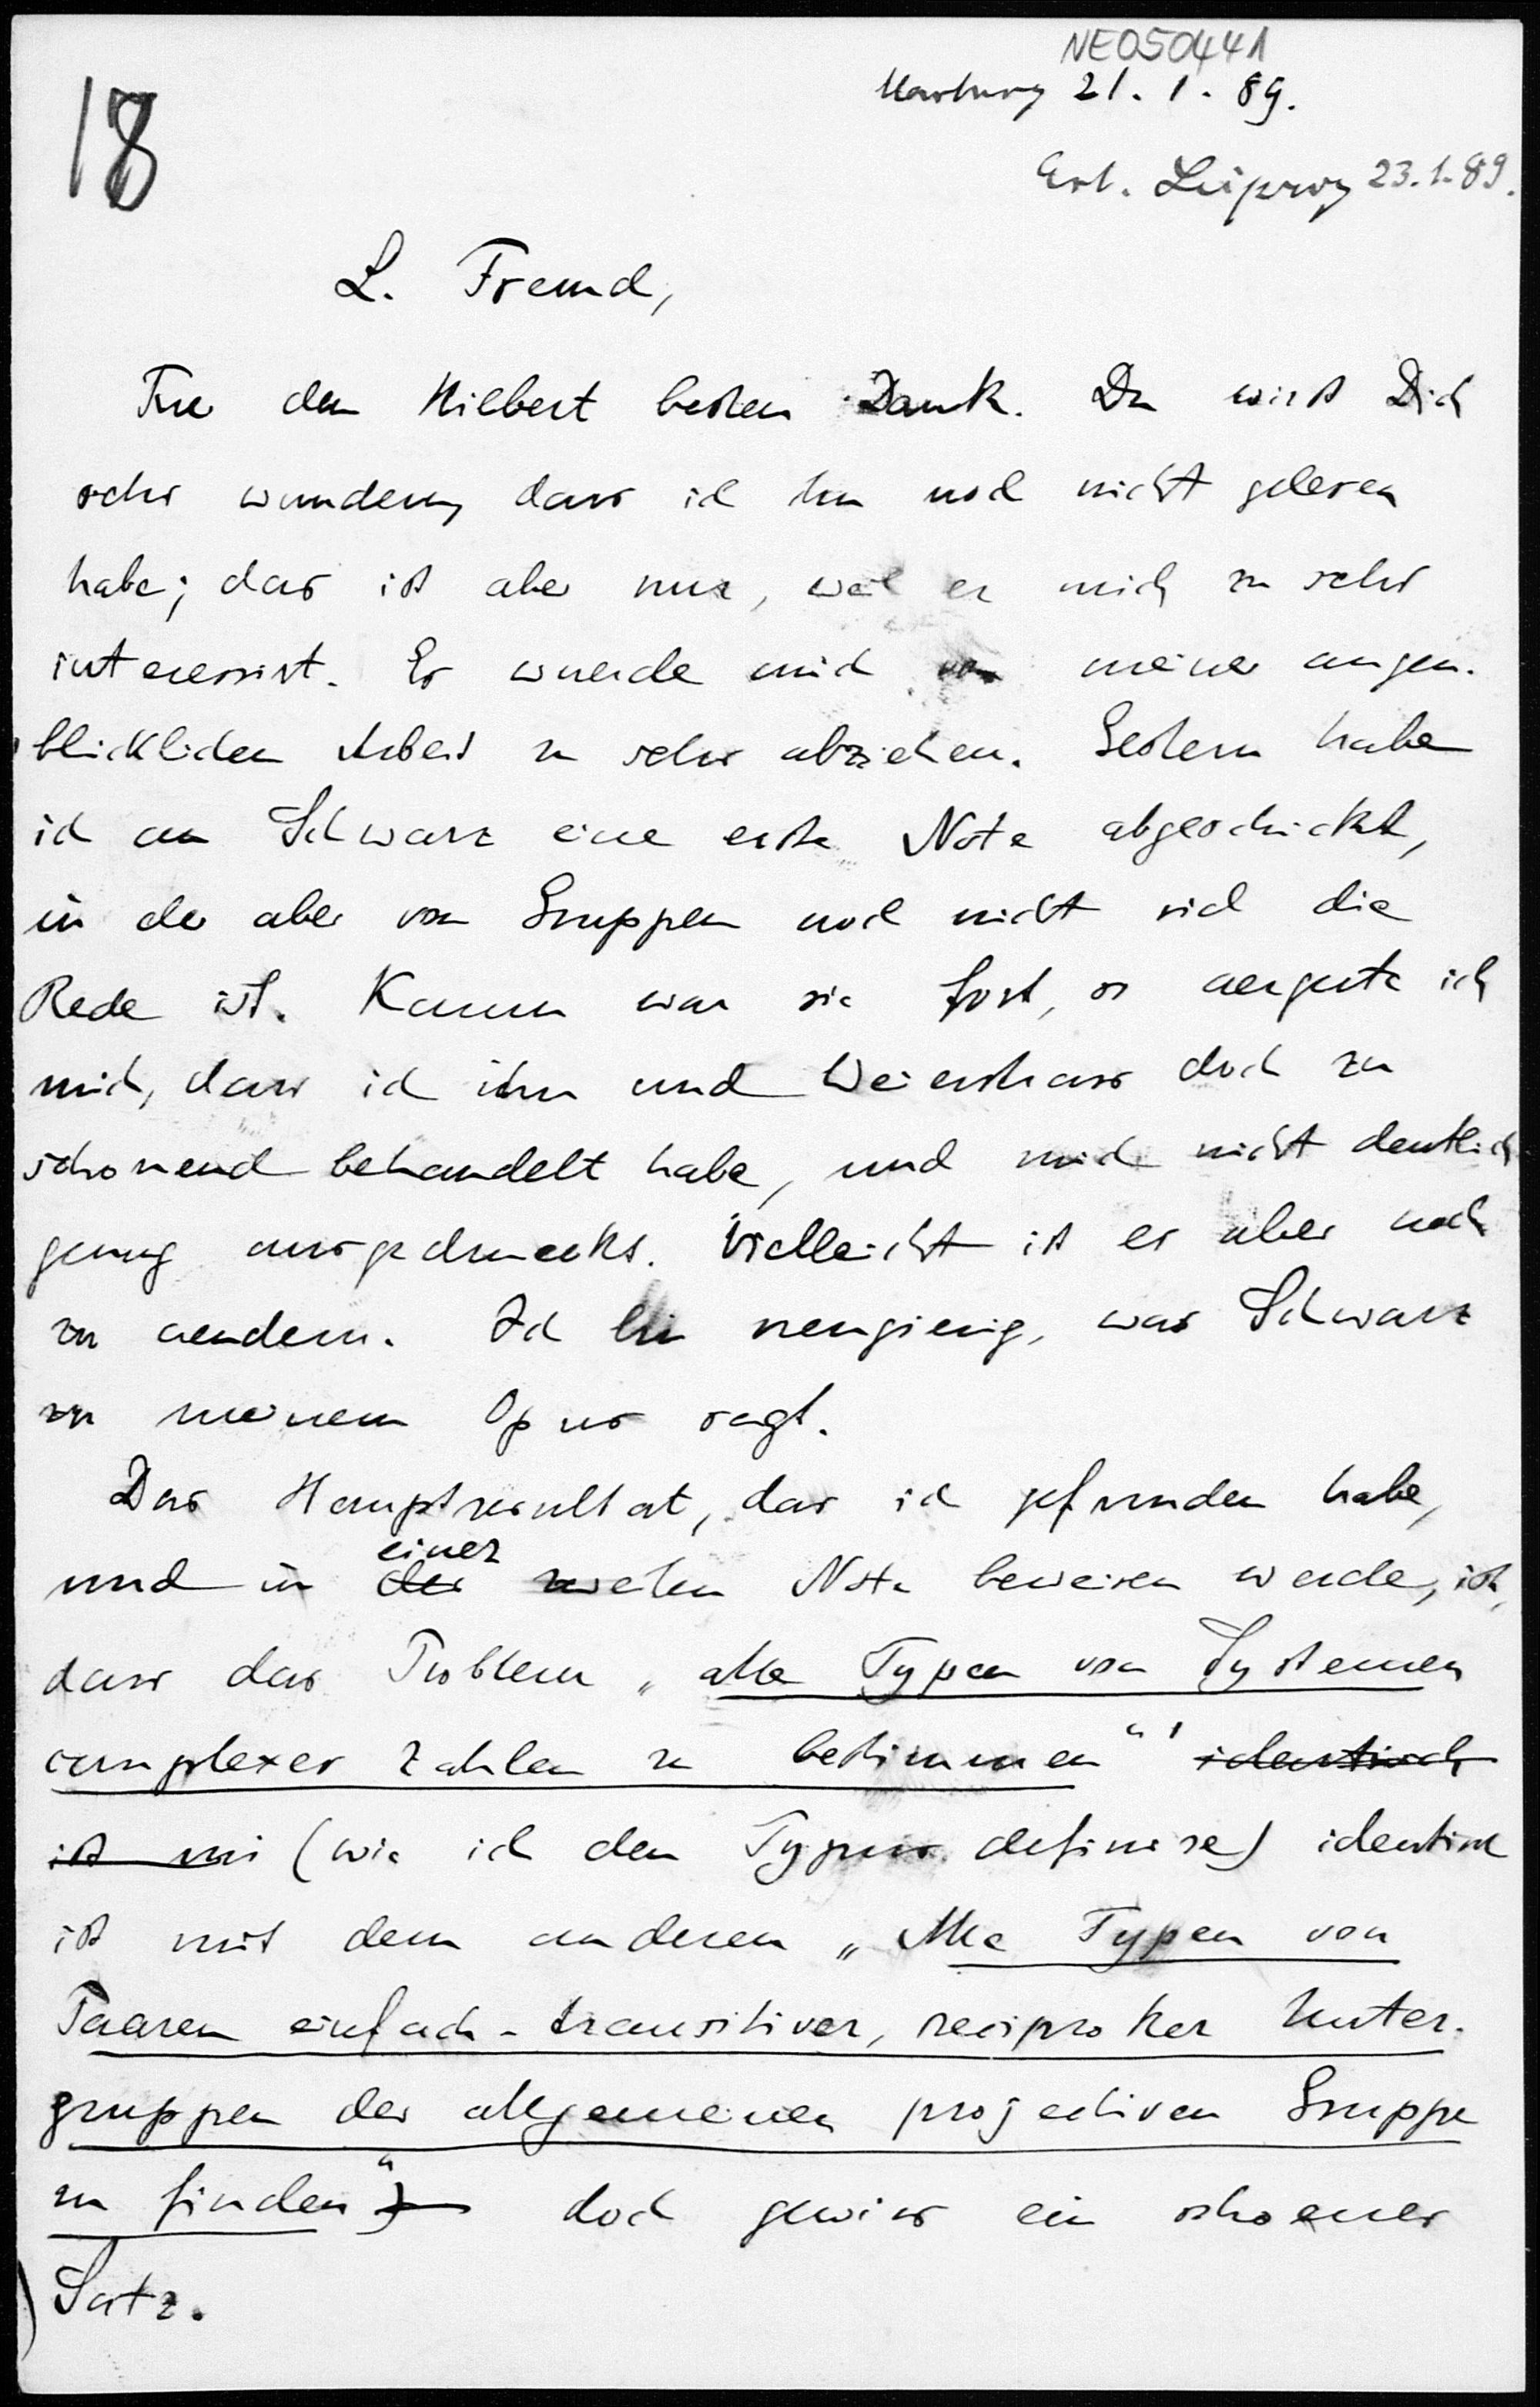 NE050441
Marburg 21. 1. 89.
18
Erh. Leipzig 23.1.89.
L. Freund,
Fue den Hilbert besten Dank. Du wirst Dich
sehr wundern, dass ich ihn noch nicht gelesen
habe; das ist aber nur, weil er mich zu sehr
interessirt. Er wuerde mich von meiner augen-
blicklichen Arbeit zu sehr abziehen. Gestern habe
ich an Schwarz eine erste Note abgeschickt,
in der aber von Gruppen noch nicht viel die
Rede ist. Kaum war sie fort, so aergerte ich
mich, dass ich ihn und Weierstrass doch zu
schonend behandelt habe, und mich nicht deutlich
genug ausgedrueckt. Vielleicht ist es aber noch
zu aendern. Ich bin neugierig, was Schwarz
zu meinem Opus sagt.
Das Hauptresultat, das ich gefunden habe,
einer
und in der zweiten Note beweisen werde, ist,
dass das Problem „alle Typen von Systemen
complexer Zahlen zu bestimmen“ identisch
ist mi (wie ich den Typus definire) identisch
ist mit dem anderen „Alle Typen von
Paaren einfach-transitiver, reciproker Unter-
gruppen der allgemeinen projectiven Gruppe
zu finden“) doch gewiss ein schoener
Satz.